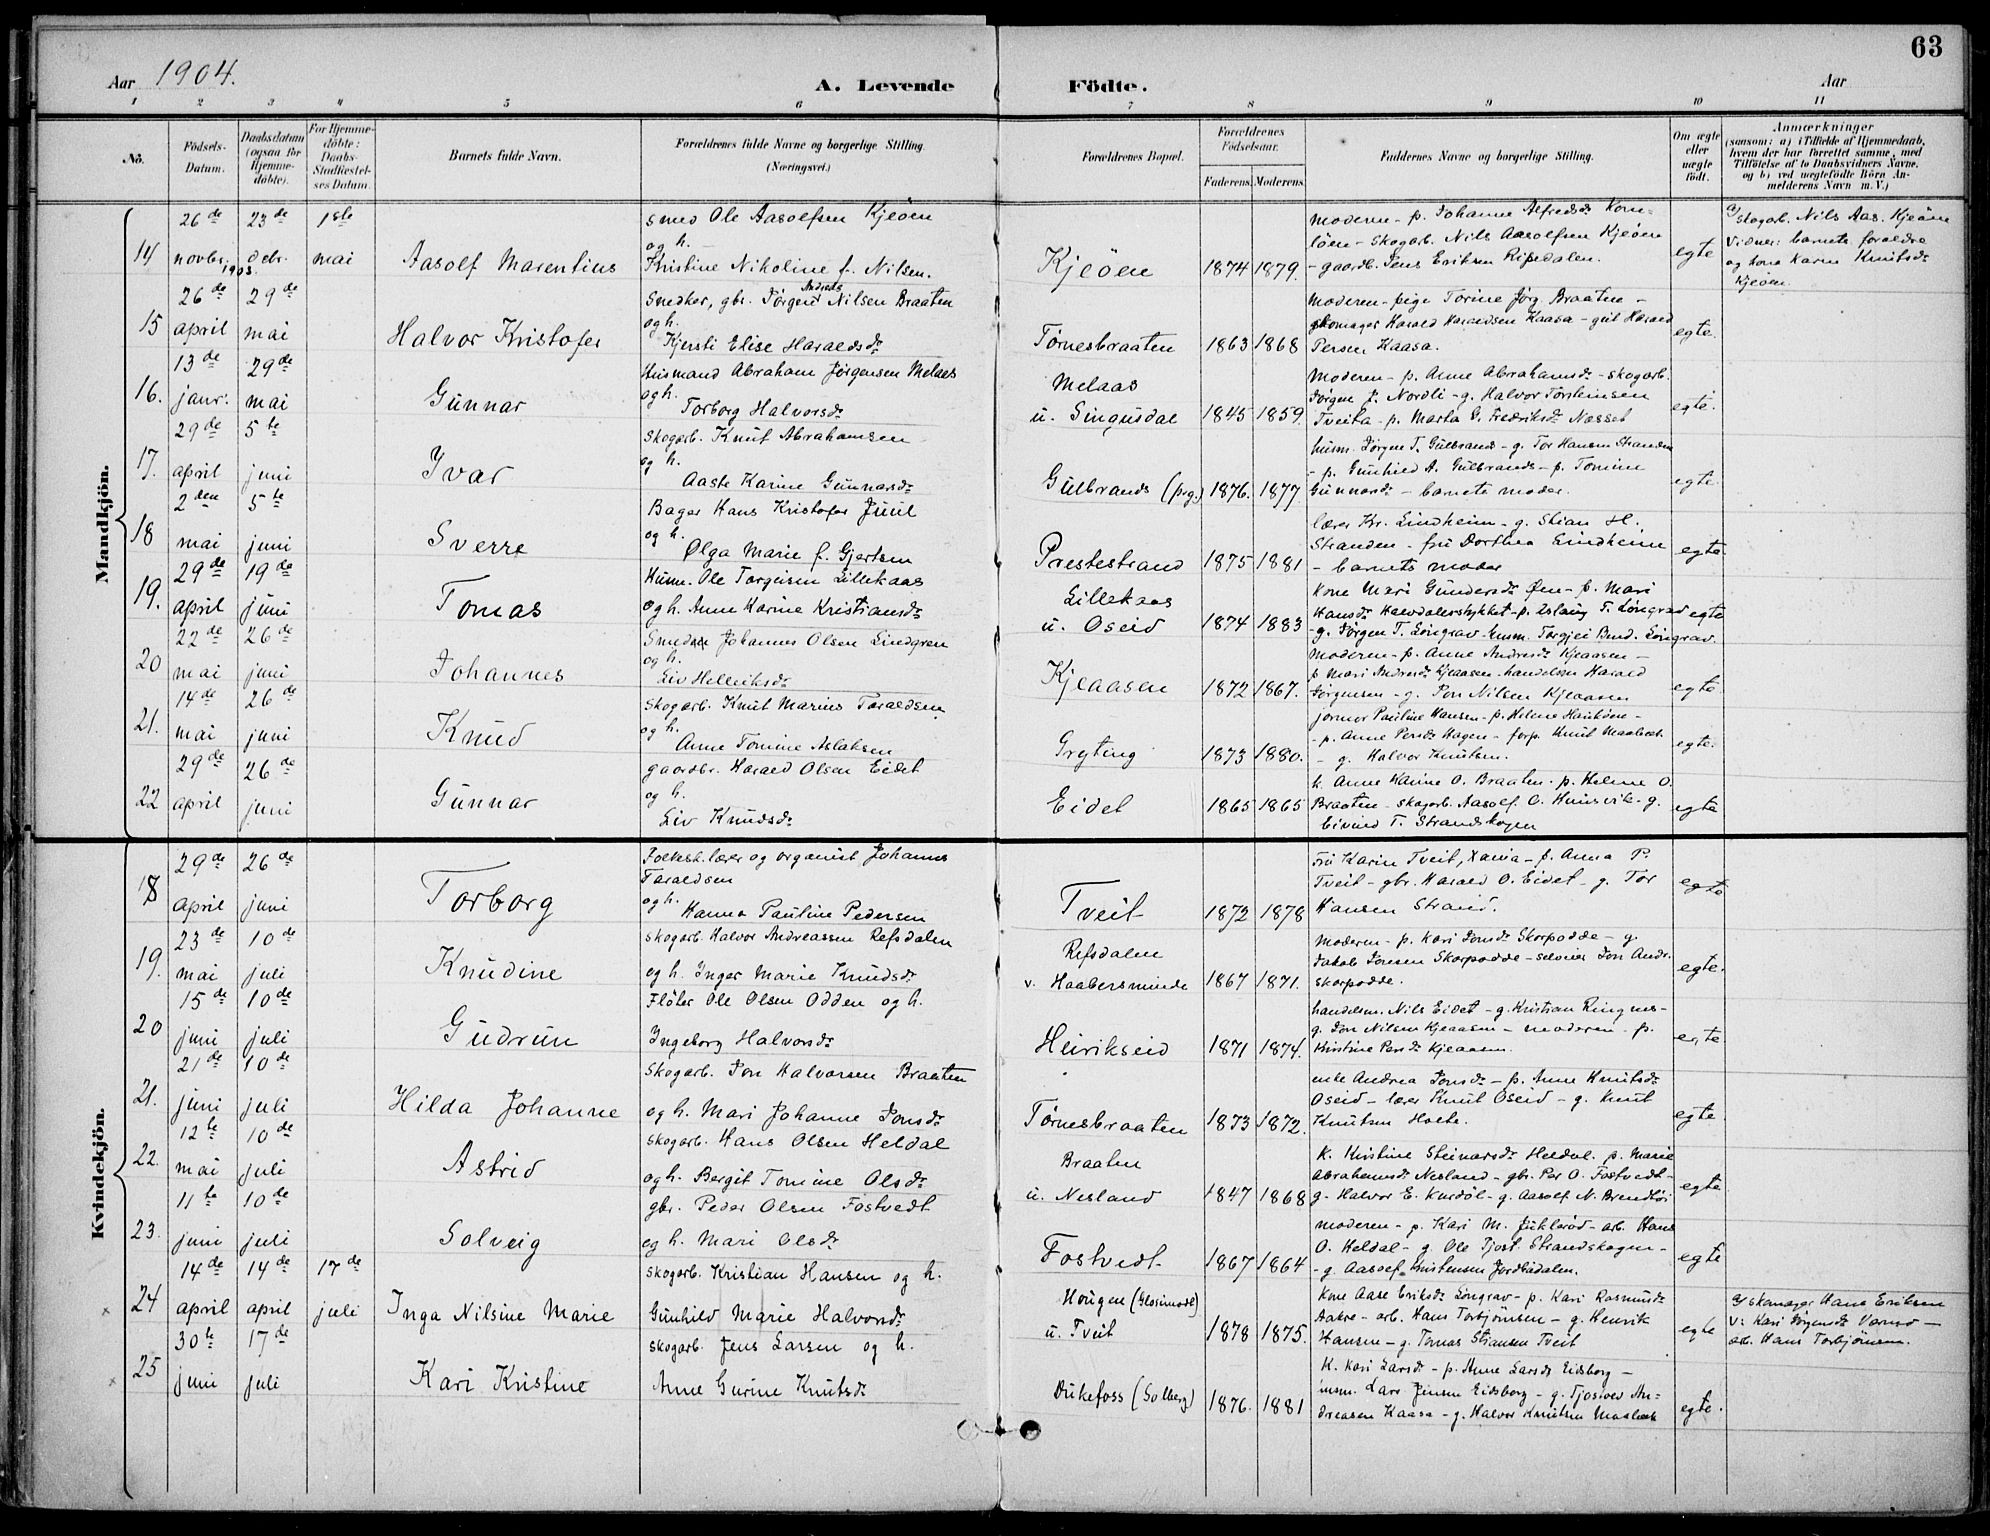 63
Aar 1904.
A. Levende Födte.
Aar
1 2 3 4 5 6 7 8 9 10 11
No.
Födsels-Datum.
Daabsdatum (ogsaa for Hjemme-döbte).
For Hjemme-döbte: Daabs-Stadfæstel-ses Datum.
Barnets fulde Navn.
Forældrenes fulde Navne og borgerlige Stilling (Næringsvei.)
Forældrenes Bopæl.
Forældrenes Födselsaar.
Faderens. Moderens.
Faddernes Navne og borgerlige Stilling.
Om ægte eller uægte födt.
Anmærkninger
(saasom: a) i Tilfælde af Hjemmedaab,
hvem der har forrettet samme, med
Tilföielse af to Daabsvidners Navne,
og b) ved uægtefödte Börn An-
melderens Navn m. V.)
Mandkjön.
14 26de novbr. 1903 23de debr. 1ste mai Aasolf Marentius
Smed Ole Aasolfsen Kjeöen
og h.
Kristine Nikoline f. Nilsen.
Kjeöen 1874 1879.
Moderen - p. Johanne Alfredsdr Kom-
löen - Skogarb. Nils Aasolfsen Kjeöen
- gaardb. Jens Eriksen Ripedalen.
egte
a/ Skogarb. Nils Aas. Kjeöen
Vidner: barnets foreldre
og kone Karen Knutsdr
Kjeöen.
15 26de april 29de mai Halvor Kristofer
Snedker, gbr. Jörgen Andreas Nilsen Braaten
og h.
Kjersti Elise Haraldsdr
Törnesbraaten 1863 1868
Moderen - pige Torine Jörg. Braaten -
skomager Harald Haraldsen Kaasa - gut Harald
Persen Kaasa.
egte.
16. 13de janr. 29de mai Gunnar
Husmand Abraham Jörgensen Melaas
og h.
Torborg Halvorsdr
Melaas
u. Singusdal 1845 1859.
Moderen - p. Anne Abrahamsdr - skogarb.
Jörgen J. Nordli - g. Halvor Torsteinsen
Tveita - p. Marta G. Fredriksdr Næsset
egte.
17. 29de april 5te juni Ivar
Skogarb. Knut Abrahamsen
og h.
Aaste Karine Gunnarsdr
Gulbrands (prg.) 1876. 1877.
husm. Jörgen T. Gulbrands - g. Tor Hansen Stranden
- p. Gunhild A. Gulbrands - p. Tomine
Gunnarsdr - barnets moder.
egte.
18 2den mai 5te juni Sverre
Bager Hans Kristofer Juul
og h.
Olga Marie f. Gjertsen
Prestestrand 1875 1881
lærer Kr. Lindheim - g. Stian H.
Stranden - fru Dorthea Lindheim
- barnets moder
egte.
19. 29de april 19de juni Tomas
Husm. Ole Torgeisen Lillekaas
og h. Anne Karine Kristiansdr
Lillekaas
u. Oseid 1874 1883
Kone Mari Gundersdr Öen - p. Mari
Hansdr Halvdalerstykket - p. Aslaug T. Löngrav
- g. Jörgen T. Löngrav - husm. Torgjei Bend. Löngrav.
egte
20 22de mai 26de juni Johannes
Smed Johannes Olsen Lindgren
og h.
Liv Helleiksdr
Kjeaasen 1872 1867.
Moderen - p. Anne Andresdr Kjeaasen -
p. Mari Andresdr Kjeaasen - handelsm Harald
Jörgensen - g. Jon Nilsen Kjeaasen
egte.
21. 14de mai 26de juni Knud
Skogarb. Knut Marius Taraldsen
og h.
Anne Tomine Aslaksen
Gryting 1873 1880.
jormor Pauline Hansen - p. Helene Hauköen -
- p. Anne Persdr Hagen - forp. Knut Maalbæk
- g. Halvor Knutsen.
egte.
22 29de april 26de juni Gunnar
gaardbr. Harald Olsen Eidet
og h.
Liv Knudsdr
Eidet 1865 1865
k. Anne Karine O. Braaten - p. Helene O.
Braaten - skogarb. Aasolf O. Kuinsvik - g.
Eivind T. Strandskogen
egte
Kvindekjön.
18 29de april 26de juni Torborg
Folkesk.lærer og organist Johannes
Taraldsen
og h.
Hanna Pauline Pedersen
Tveit 1872 1878
Fru Karin Tveit, Xania - p. Anna P.
Tveit - gbr. Harald O. Eidet - g. Tor
Hansen Strand.
egte
19. 23de mai 10de juli Knudine
Skogarb. Halvor Andreassen Refsdalen
og h. Inger Marie Knudsdr
Refsdalen
v. Haabersminde 1867 1871.
Moderen - p. Kari Jonsdr Skorpodde - g.
Jakob Jonsen Skorpodde - selveier Jon Andr.
Skorpodde.
egte.
20 15de juni 10de juli Gudrun
Flöter Ole Olsen Odden og h.
Ingeborg Halvorsdr
Heirikseid 1871 1874.
handelsm. Nils Eidet - g. Kristian Ringnes -
g. Jon Nilsen Kjeaasen - moderen - p.
Kristine Persdr Kjeaasen.
egte
21. 21de juni 10de juli Hilda Johanne
Skogarb. Jon Halvorsen Braaten
og h. Mari Johanne Jonsdr
Törnesbraaten 1873 1872.
enke Andrea Jonsdr - p. Anne Knutsdr
Oseid - lærer Knut Oseid - g. Knut
Knutsen Holte.
egte.
22. 12te mai 10de juli Astrid
Skogarb. Hans Olsen Heldal
og h. Bergit Tomine Olsdr
Braaten
u. Nesland 1847 1868
K. Kristine Steinarsdr Heldal. p. Marie
Abrahamsdr Nesland - gbr. Per O. Fostvedt -
g. Halvor E. Kurdöl - g. Aasolf N. Brendlöi
egte
23. 11te juni 10de juli Solveig
gbr. Peder Olsen Fostvedt
og h. Mari Olsdr
Fostvedt 1867 1864
Moderen - p. Kari M. Jukleröd - arb. Hans
O. Heldal - g. Ole Tjost. Strandskogen -
- g. Aasolf Kristensen Jordbudalen.
egte
24 14de april 14de april 17de juli Inga Nilsine Marie
Skogarb. Kristian Hansen og h.
Gunhild Marie Halvorsdr
Hougen (Glosimodt)
u. Tveit 1878 1875.
Kone Aase Eriksdr Löngrav - p. Kari Rasmusdr
Aakre - arb. Hans Torbjörnsen - g. Henrik
Hansen - g. Tomas Stiansen Tveit
egte
a/ Skomager Hans Eriksen
V: Kari Jörgensdr Vamso -
arb. Hans Torbjörnsen.
25 30te juni 17de juli Kari Kristine
skogarb. Jens Larsen og h.
Anne Gurine Knutsdr
Dukefoss (Solberg) 1876. 1881
K. Kari Larsdr - p. Anne Larsdr Eidsborg -
insm. Lars Jensen Eidsborg - g. Tjostov An-
dreasen Kaasa - g. Halvor Knutsen Maalbæk
egte.